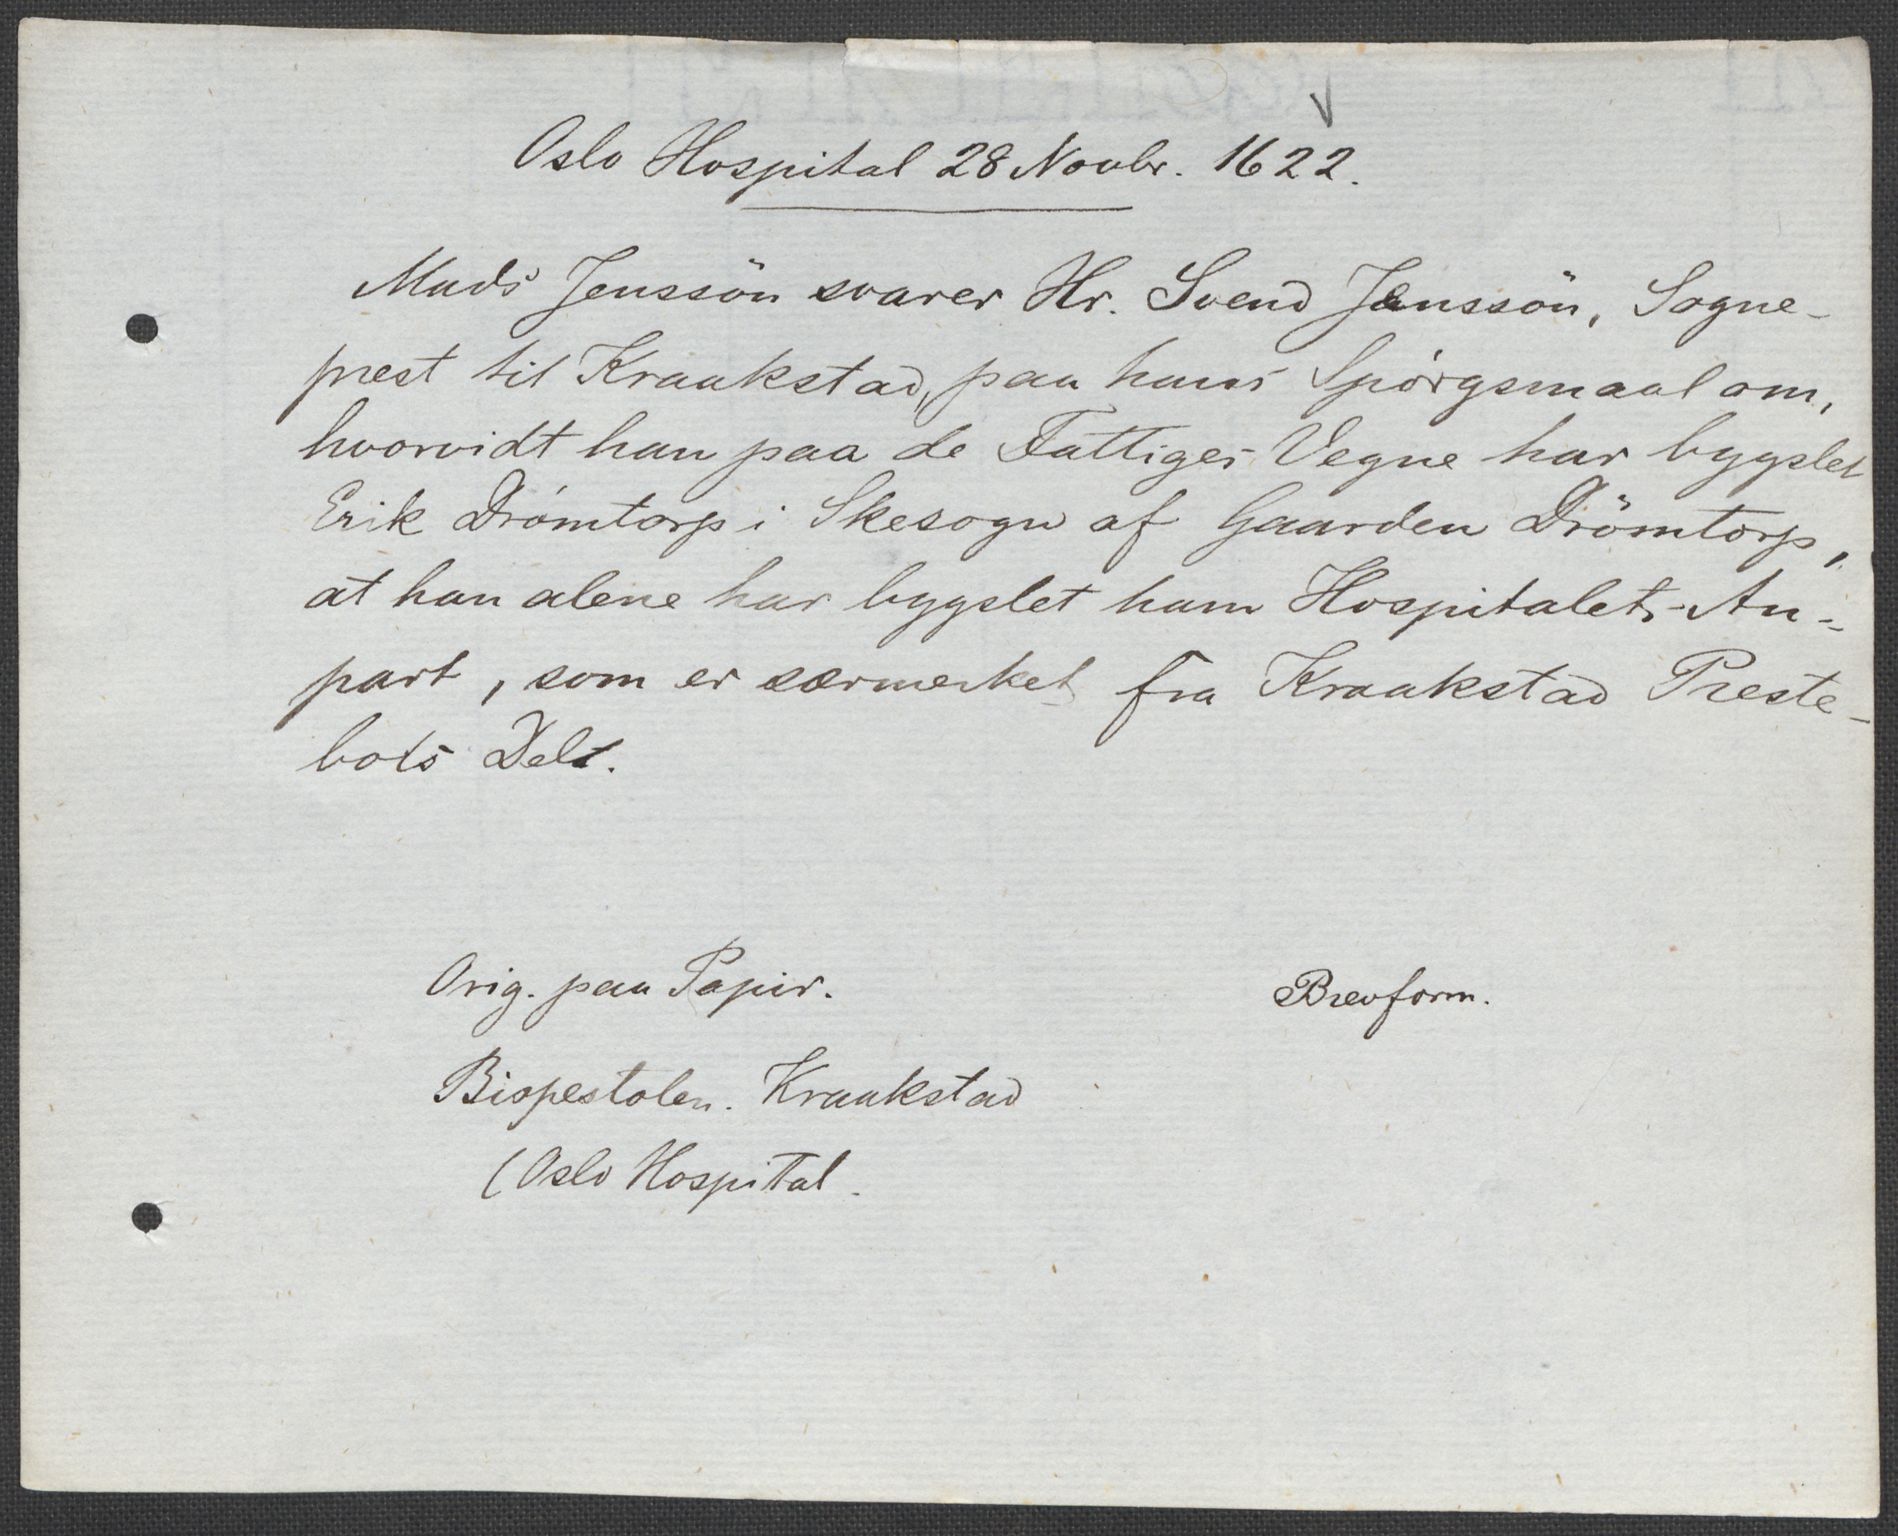 Oslo Hospital 28 Novbr. 1622.
Mads Jenssön svarer Hr. Svend Jenssön, Sogne-
prest til Kraakstad, paa hans Spörgsmaal om,
hvorvidt han paa de Fattiges Vegne har bygslet
Erik Drömtorp i Skesogn af Gaarden Drömtorp,
at han alene har bygslet ham Hospitalets An-
part, som er særmerket fra Kraakstad Preste-
bols Del.
Orig. paa Papir. Brevform.
Bispestolen. Kraakstad
(Oslo Hospital.